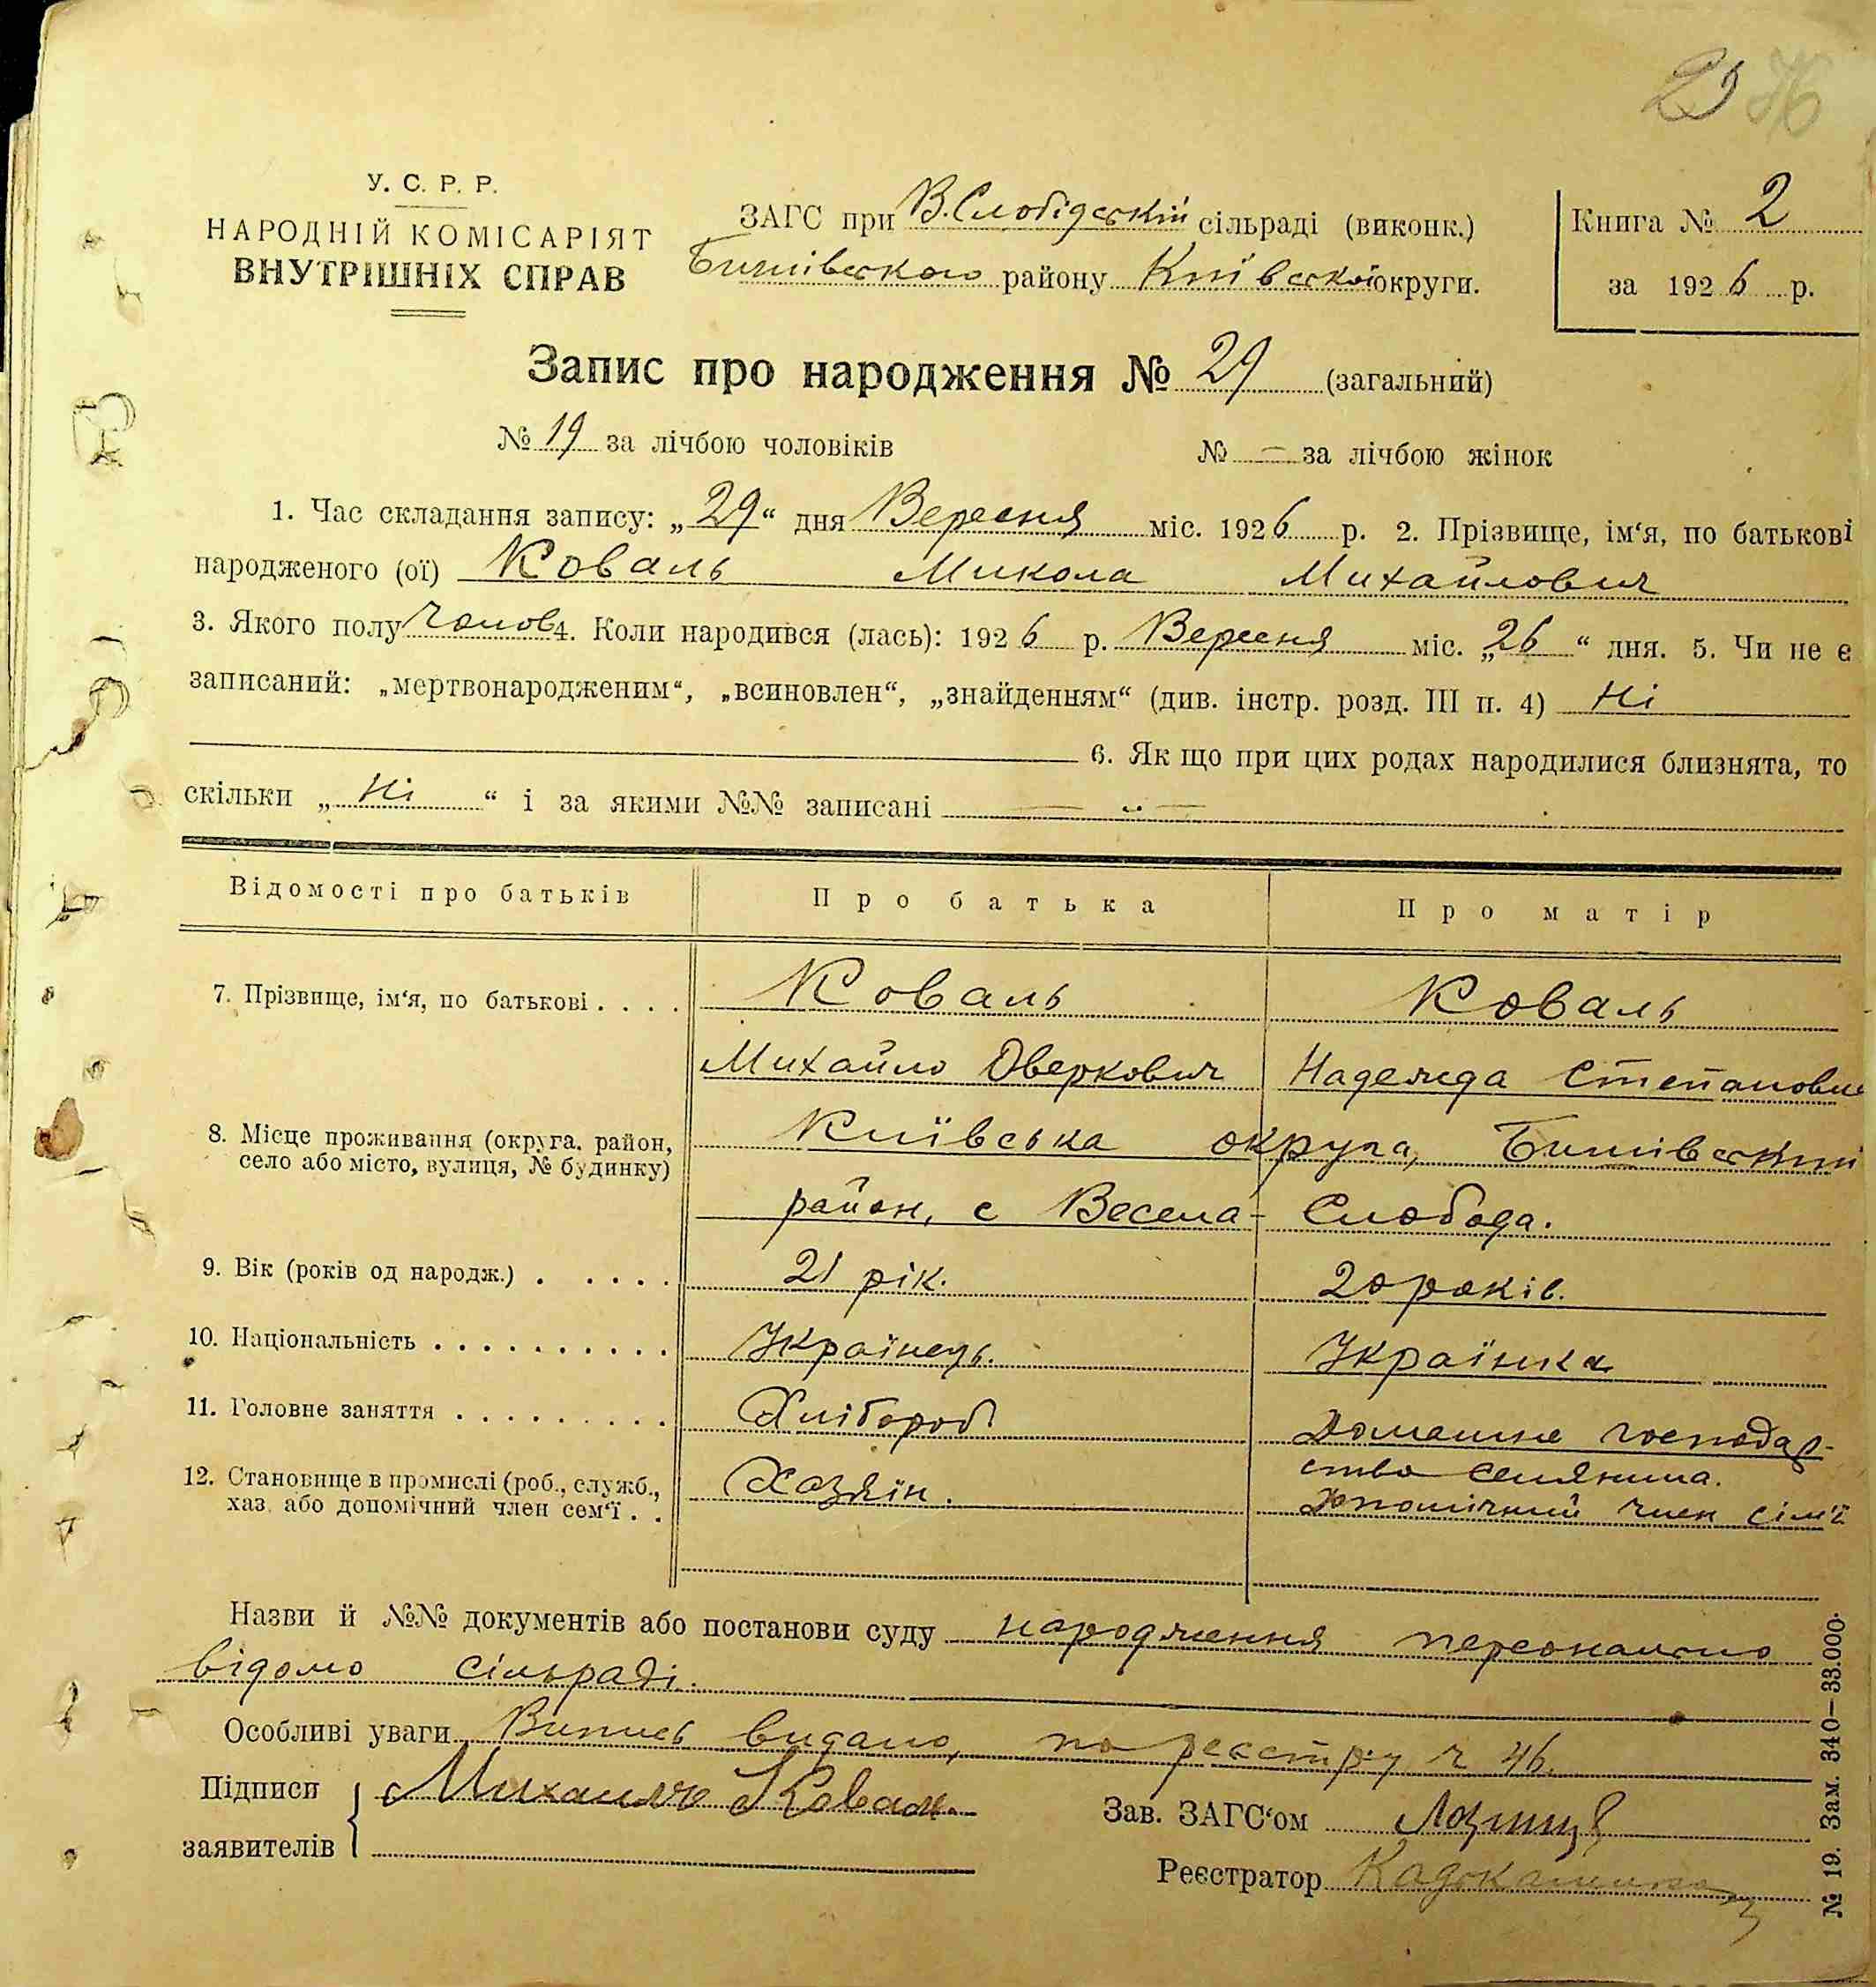 У. С. Р. Р.
НАРОДНІЙ КОМІСАРІЯТ
ВНУТРІШНІХ СПРАВ
ЗАГС при В.Слобідській сільраді (виконк.)
Бишівського району Київської округи.
Книга № 2
за 1926 р.
Запис про народження № 29 (загальний)
№ 19 за лічбою чоловіків № — за лічбою жінок
1. Час складання запису: „29“ дня Вересня міс. 1926 р. 2. Прізвище, ім‘я, по батькові
народженого (ої) Коваль Микола Михайлович
3. Якого полу чолов 4. Коли народився (лась): 1926 р. Вересня міс. „26“ дня. 5. Чи не є
записаний: „мертвонародженим“, „всиновлен“, „знайденням“ (див. інстр. розд. III п. 4) Ні
6. Як що при цих родах народилися близнята, то
скільки „Ні“ і за якими №№ записані — „ —
Відомості про батьків Про батька Про матір
7. Прізвище, ім‘я, по батькові . . . . Коваль Коваль
Михайло Оверкович Надежда Степановн
8. Місце проживання (округа, район, село або місто, вулиця, № будинку) Київська округа, Бишівський
район, с Весела-Слобода.
9. Вік (років од народж.) . . . . . 21 рік. 20 років.
10. Національність . . . . . . . . . . Українець. Українка
11. Головне заняття . . . . . . . . . Хлібороб Домашнє господар-
ство селянина.
12. Становище в промислі (роб., служб., хаз. або допомічний член сем‘ї . . Хазяїн. Допомічний член сім'ї
Назви й №№ документів або постанови суду народження персонально
відомо сільраді.
Особливі уваги Випись видано, по реєстру ч 46.
Підписи заявителів Михаило Коваль
Зав. ЗАГС‘ом Лозниця
Реєстратор
№ 19. Зам. 340—33.000.